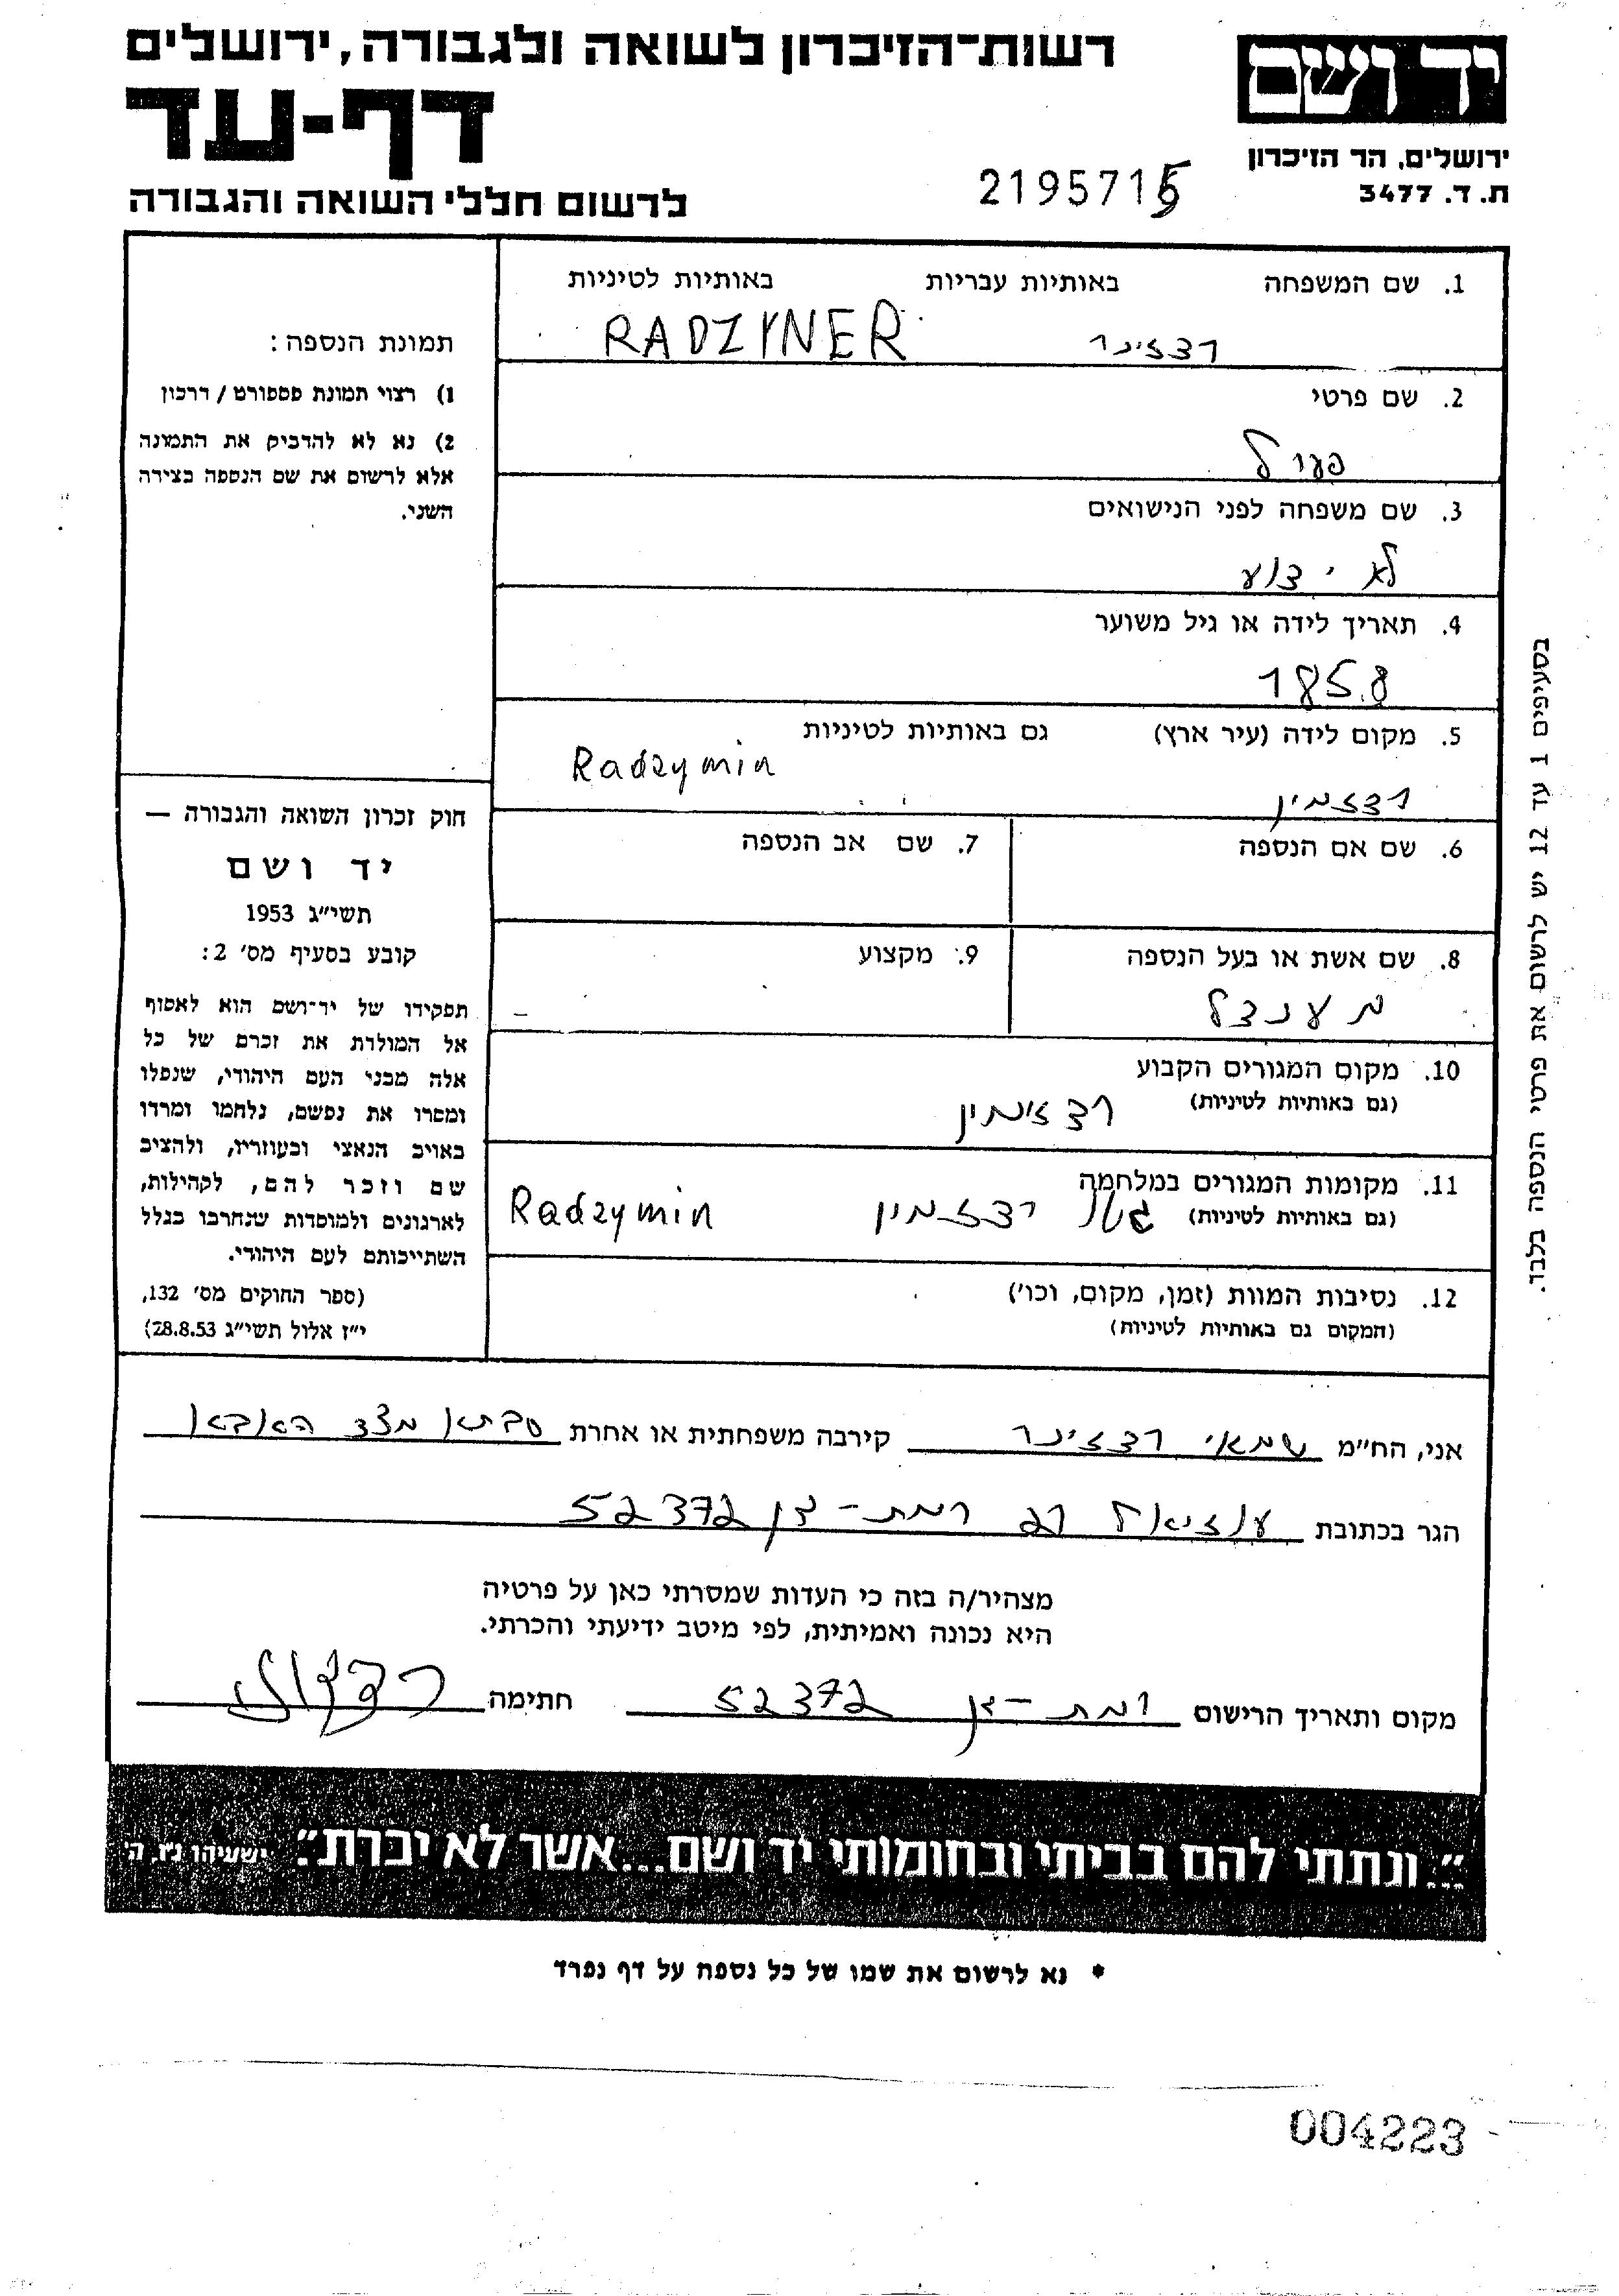 רשות־הזיכרון לשואה ולגבורה, ירושלים
דף-עד
לרשום חללי השואה והגבורה
יד ושם
ירושלים, הר הזיכרון
ת. ד. 3477
2195715
1. שם המשפחה באותיות עבריות באותיות לטיניות
רדזינר RADZYNER
2. שם פרטי
פערל
3. שם משפחה לפני הנישואים
לא ידוע
4. תאריך לידה או גיל משוער
1858
5. מקום לידה (עיר ארץ) גם באותיות לטיניות
רדזמין Radzymin
6. שם אם הנספה
7. שם אב הנספה
8. שם אשת או בעל הנספה
מענדל
9. מקצוע
–
10. מקום המגורים הקבוע
(גם באותיות לטיניות) רדזימין
11. מקומות המגורים במלחמה
(גם באותיות לטיניות) גטו רדזמין Radzymin
12. נסיבות המוות (זמן, מקום, וכו')
(המקום גם באותיות לטיניות)
תמונת הנספה:
1) רצוי תמונת פספורט / דרכון
2) נא לא להדביק את התמונה
אלא לרשום את שם הנספה בצידה
השני.
חוק זכרון השואה והגבורה —
יד ושם
תשי"ג 1953
קובע בסעיף מס' 2:
תפקידו של יד־ושם הוא לאסוף
אל המולדת את זכרם של כל
אלה מבני העם היהודי, שנפלו
ומסרו את נפשם, נלחמו ומרדו
באויב הנאצי ובעוזריו, ולהציב
שם וזכר להם, לקהילות,
לארגונים ולמוסדות שנחרבו בגלל
השתייכותם לעם היהודי.
(ספר החוקים מס' 132,
י"ז אלול תשי"ג 28.8.53)
בסעיפים 1 עד 12 יש לרשום את פרטי הנספה בלבד.
אני, הח"מ שמאי רדזינר קירבה משפחתית או אחרת סבתא מצד האבא
הגר בכתובת עוזיאל רמת-גן 52372
מצהיר/ה בזה כי העדות שמסרתי כאן על פרטיה
היא נכונה ואמיתית, לפי מיטב ידיעתי והכרתי.
מקום ותאריך הרישום רמת-גן 52372 חתימה
"...ונתתי להם בביתי ובחומותי יד ושם...אשר לא יכרת". ישעיהו נ"ו, ה'
* נא לרשום את שמו של כל נספה על דף נפרד
004223